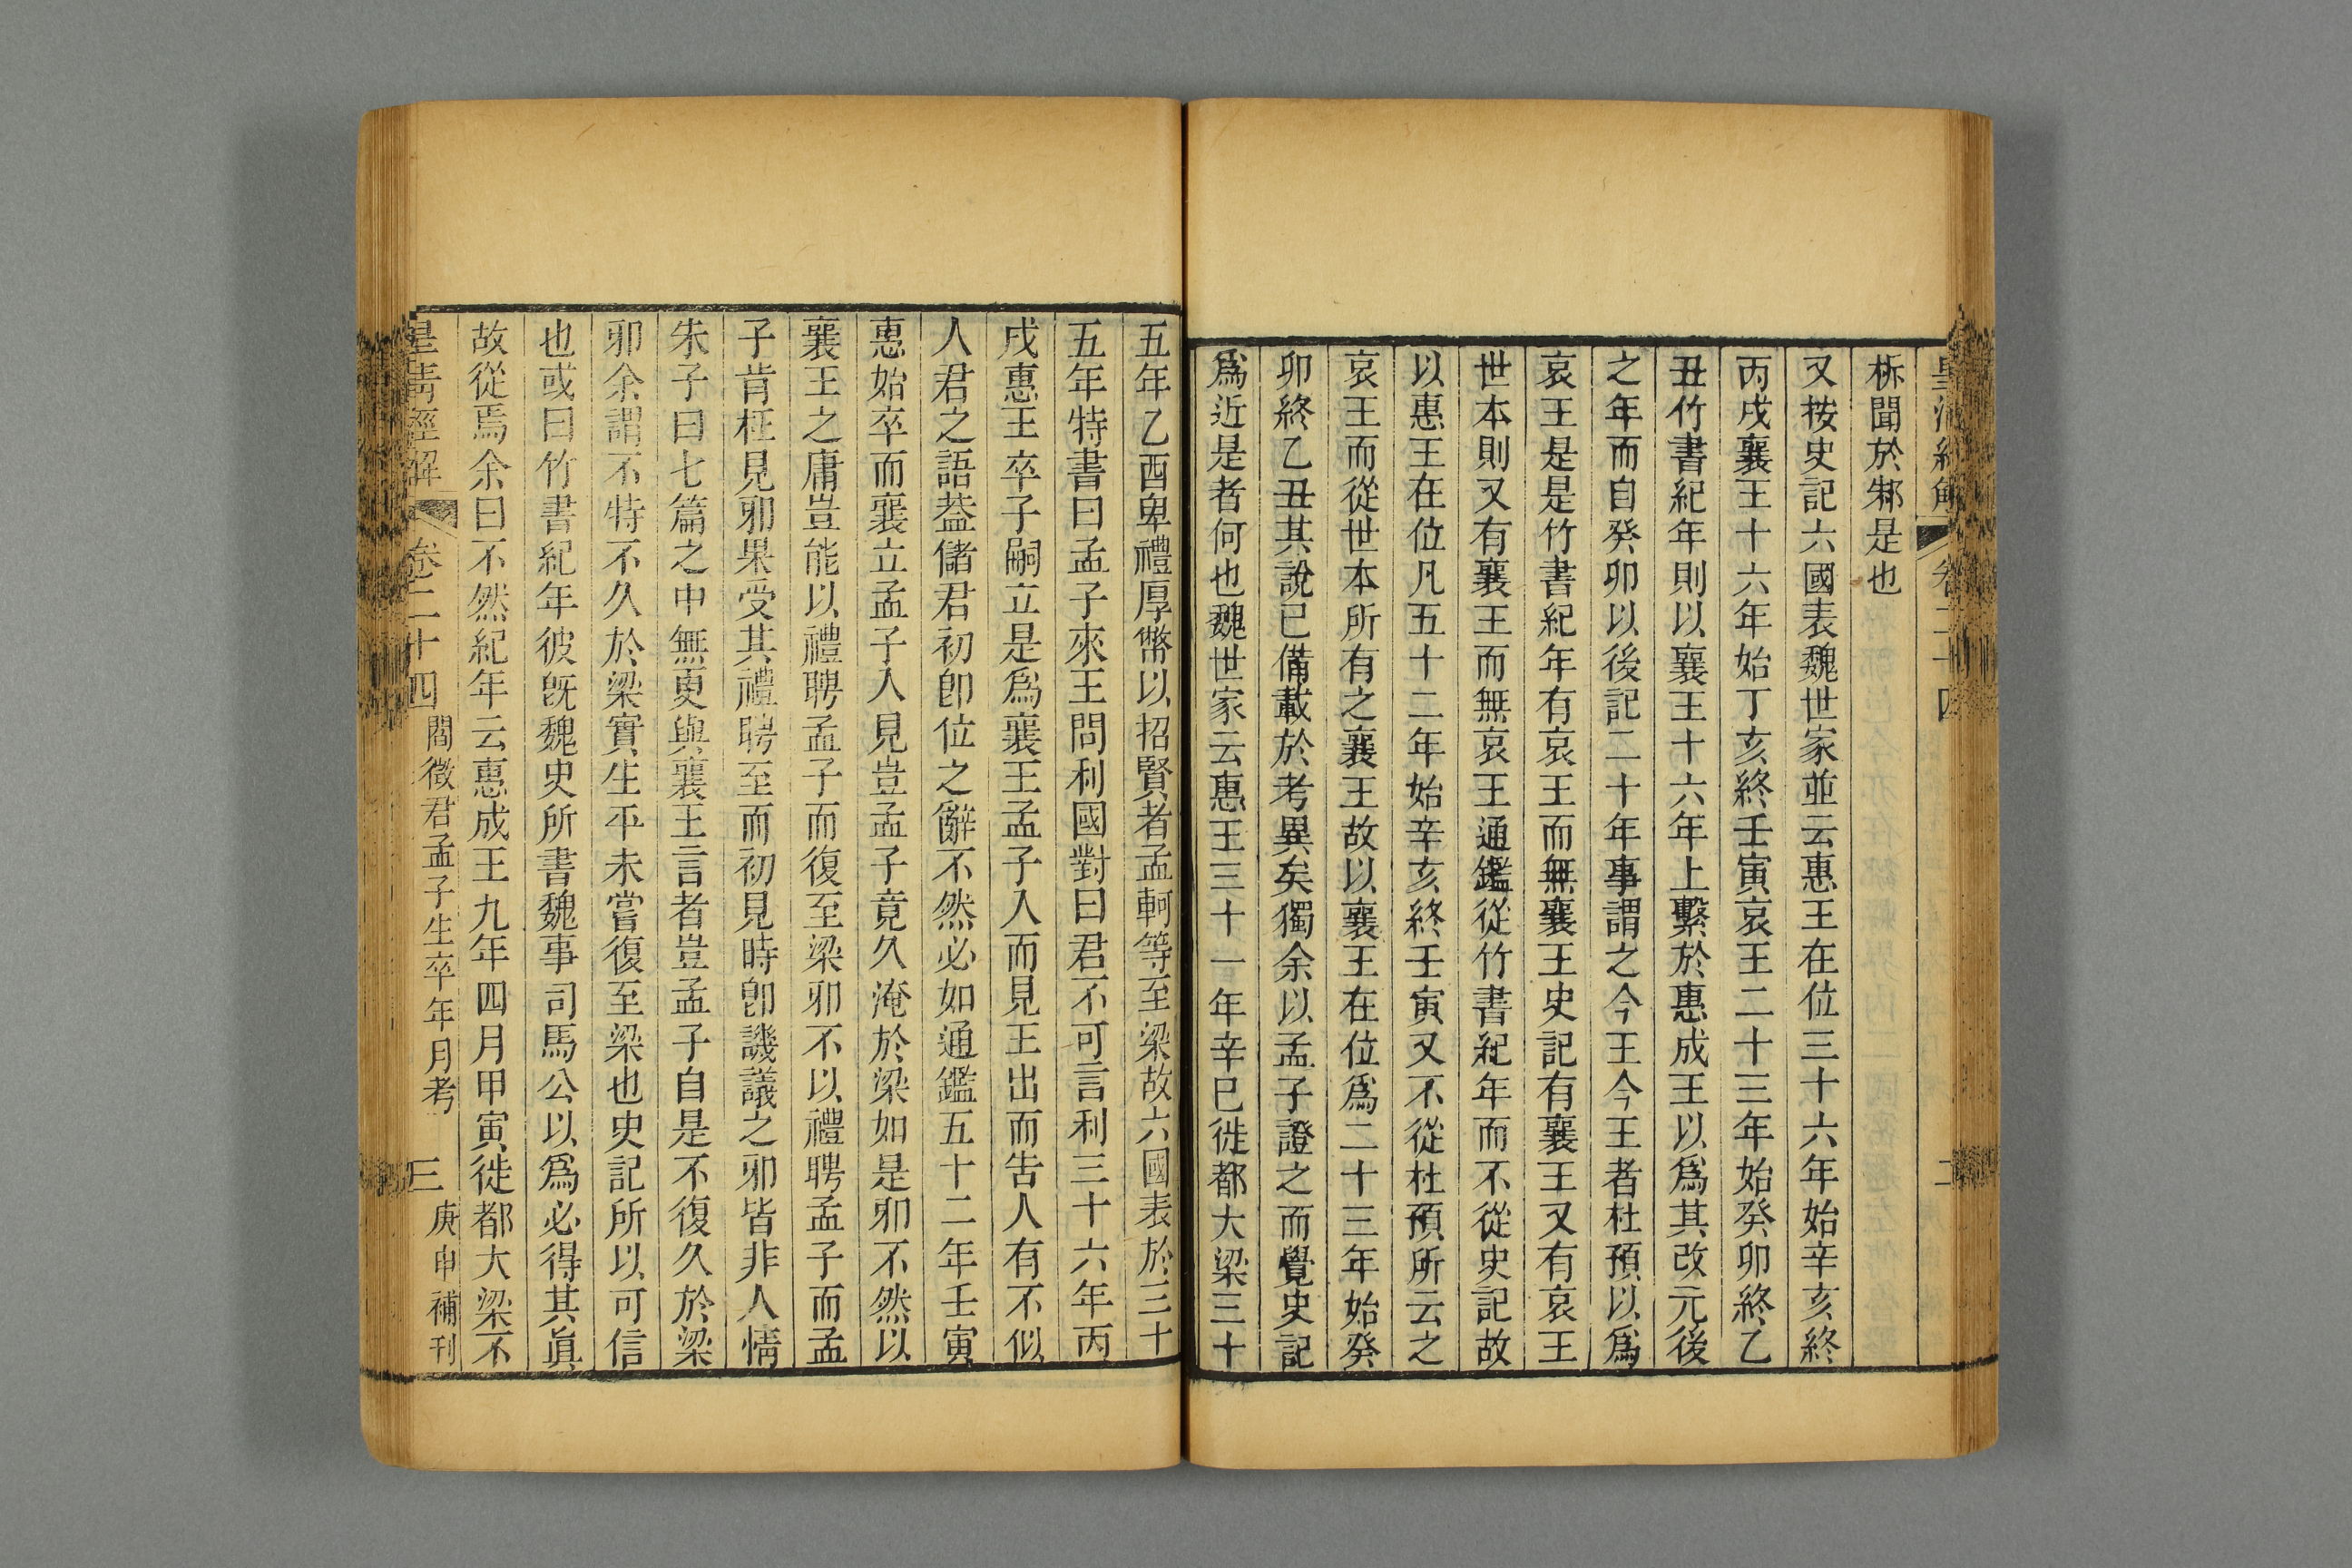 皇清經解 卷二十四 二
柝聞於邾是也
又按史記六國表魏世家並云惠王在位三十六年始辛亥終
丙戌襄王十六年始丁亥終壬寅哀王二十三年始癸卯終乙
丑竹書紀年則以襄王十六年上繫於惠成王以爲其改元後
之年而自癸卯以後記二十年事謂之今王今王者杜預以爲
哀王是是竹書紀年有哀王而無襄王史記有襄王又有哀王
世本則又有襄王而無哀王通鑑從竹書紀年而不從史記故
以惠王在位凡五十二年始辛亥終壬寅又不從杜預所云之
哀王而從世本所有之襄王故以襄王在位爲二十三年始癸
卯終乙丑其說已備載於考異矣獨余以孟子證之而覺史記
爲近是者何也魏世家云惠王三十一年辛巳徙都大梁三十
五年乙酉卑禮厚幣以招賢者孟軻等至梁故六國表於三十
五年特書曰孟子來王問利國對曰君不可言利三十六年丙
戌惠王卒子嗣立是爲襄王孟子入而見王出而告人有不似
人君之語葢儲君初卽位之辭不然必如通鑑五十二年壬寅
惠始卒而襄立孟子入見豈孟子竟久淹於梁如是邪不然以
襄王之庸豈能以禮聘孟子而復至梁邪不以禮聘孟子而孟
子肯枉見邪果受其禮聘至而初見時卽譏議之邪皆非人情
朱子曰七篇之中無更與襄王言者豈孟子自是不復久於梁
邪余謂不特不久於梁實生平未嘗復至梁也史記所以可信
也或曰竹書紀年彼旣魏史所書魏事司馬公以爲必得其眞
故從焉余曰不然紀年云惠成王九年四月甲寅徙都大梁不
皇清經解 卷二十四 閻徵君孟子生卒年月考 三 庚申補刊